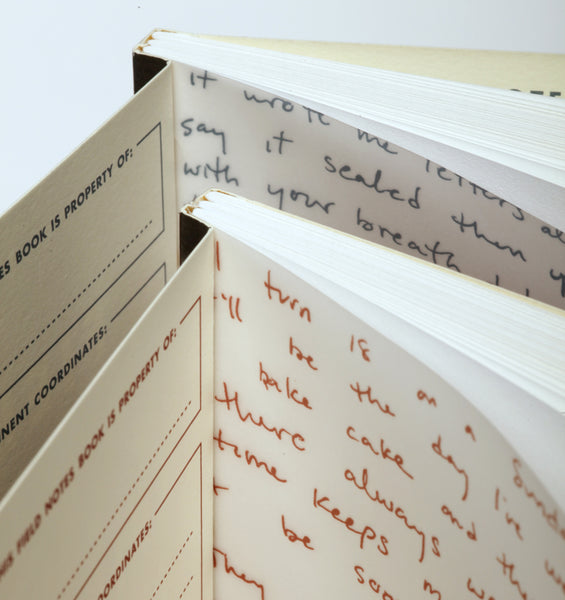 it wrote me letters
say it sealed them
with your breath
ES BOOK IS PROPERTY OF:
NENT COORDINATES:
turn is on a
'll be the day I've
bake cake and
there always
time keeps
be
they
HIS FIELD NOTES BOOK IS PROPERTY OF:
OORDINATES: